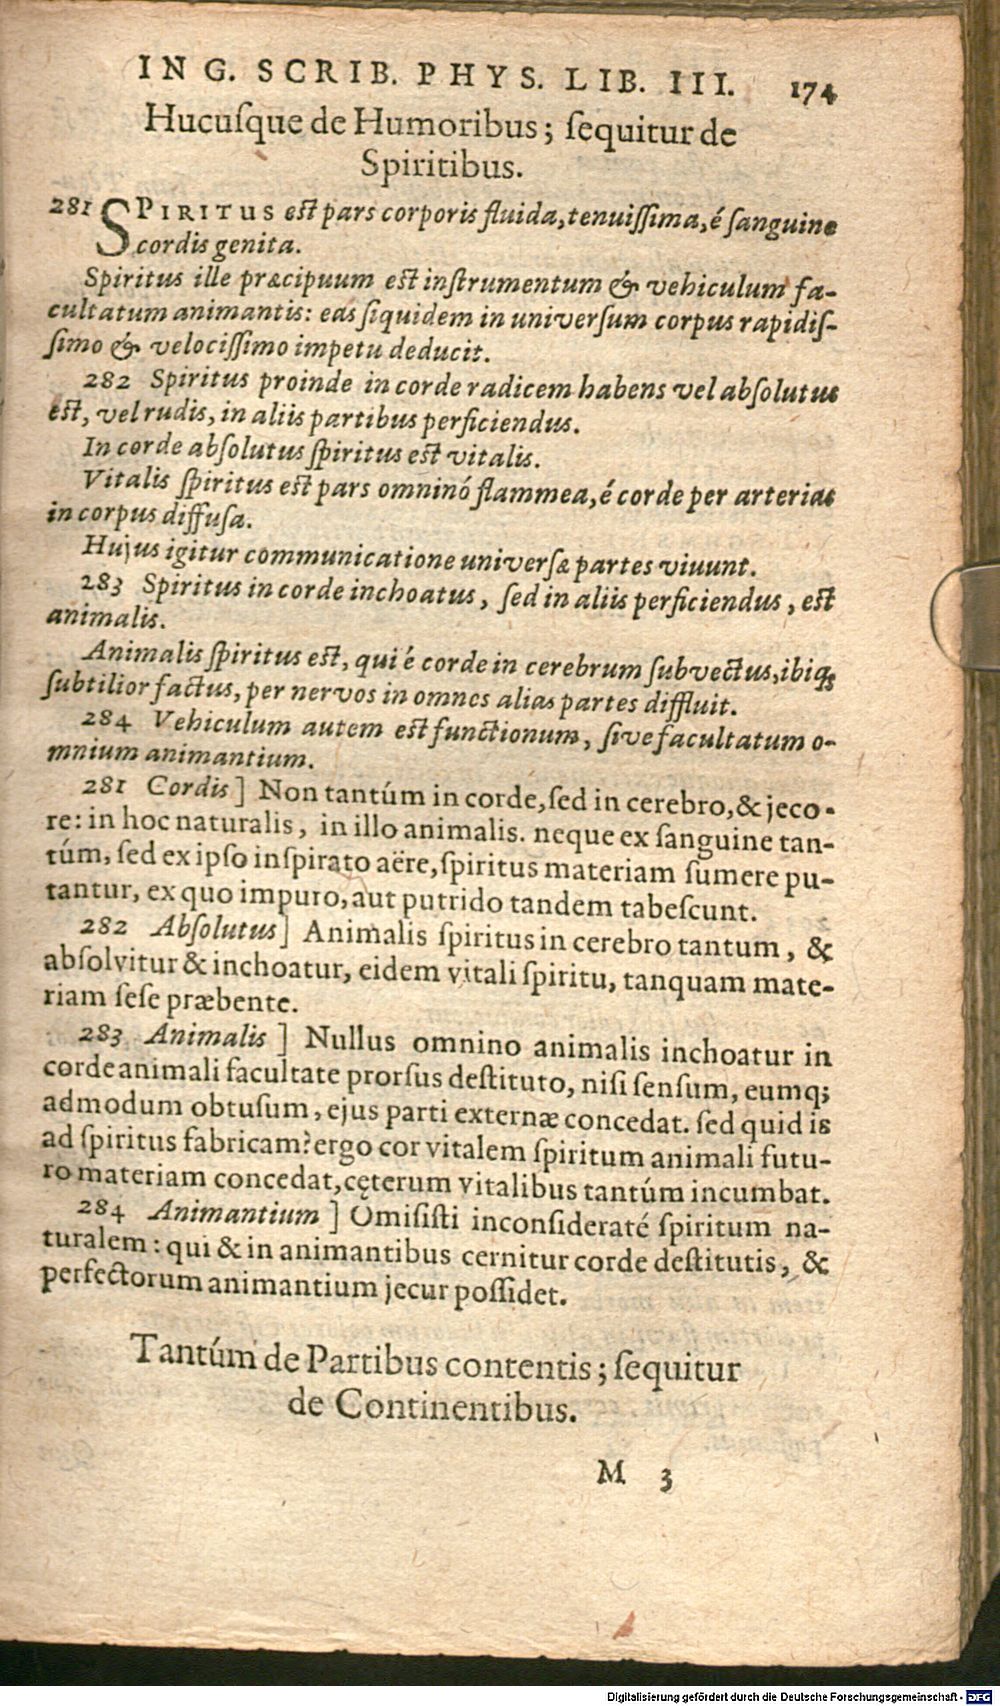 IN G. SCRIB. PHYS. LIB. III. 174
Hucuſque de Humoribus; ſequitur de
Spiritibus.
281 SPIRITUS eſt pars corporis fluida, tenuiſſima, é ſanguine
cordis genita.
Spiritus ille præcipuum eſt inſtrumentum & vehiculum fa-
cultatum animantis: eas ſiquidem in univerſum corpus rapidiſ-
ſimo & velociſſimo impetu deducit.
282 Spiritus proinde in corde radicem habens vel abſolutus
eſt, vel rudis, in aliis partibus perficiendus.
In corde abſolutus ſpiritus eſt vitalis.
Vitalis ſpiritus eſt pars omninó flammea, é corde per arterias
in corpus diffuſa.
Hujus igitur communicatione univerſæ partes viuunt.
283 Spiritus in corde inchoatus, ſed in aliis perficiendus, eſt
animalis.
Animalis ſpiritus eſt, qui é corde in cerebrum ſubvectus, ibiq;
ſubtilior factus, per nervos in omnes alias partes diffluit.
284 Vehiculum autem eſt functionum, ſive facultatum o-
mnium animantium.
281 Cordis] Non tantúm in corde, ſed in cerebro, & jeco-
re: in hoc naturalis, in illo animalis. neque ex ſanguine tan-
túm, ſed ex ipſo inſpirato aëre, ſpiritus materiam ſumere pu-
tantur, ex quo impuro, aut putrido tandem tabeſcunt.
282 Abſolutus] Animalis ſpiritus in cerebro tantum, &
abſolvitur & inchoatur, eidem vitali ſpiritu, tanquam mate-
riam ſeſe præbente.
283 Animalis] Nullus omnino animalis inchoatur in
corde animali facultate prorſus deſtituto, niſi ſenſum, eumq;
admodum obtuſum, ejus parti externæ concedat. ſed quid is
ad ſpiritus fabricam? ergo cor vitalem ſpiritum animali futu-
ro materiam concedat, cęterum vitalibus tantúm incumbat.
284 Animantium] Omiſiſti inconſideraté ſpiritum na-
turalem: qui & in animantibus cernitur corde deſtitutis, &
perfectorum animantium jecur poſſidet.
Tantúm de Partibus contentis; ſequitur
de Continentibus.
M 3
Digitalisierung gefördert durch die Deutsche Forschungsgemeinschaft - DFG